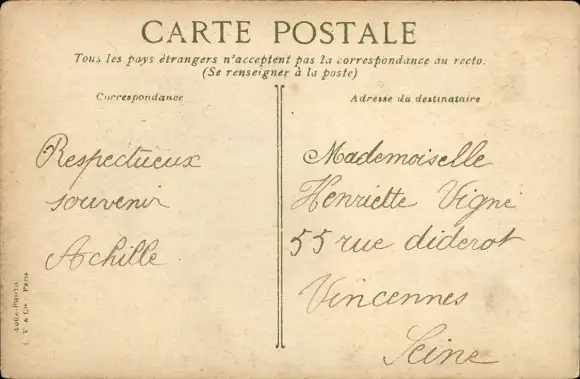 CARTE POSTALE
Tous les pays étrangers n'acceptent pas la correspondance au recto.
(Se renseigner à la poste)
Correspondance
Respectueux
souvenir
Achille
Adresse du destinataire
Mademoiselle
Henriette Vigné
55 rue diderot
Vincennes
Seine
AQUA-PHOTO
L. V. & Cie Paris